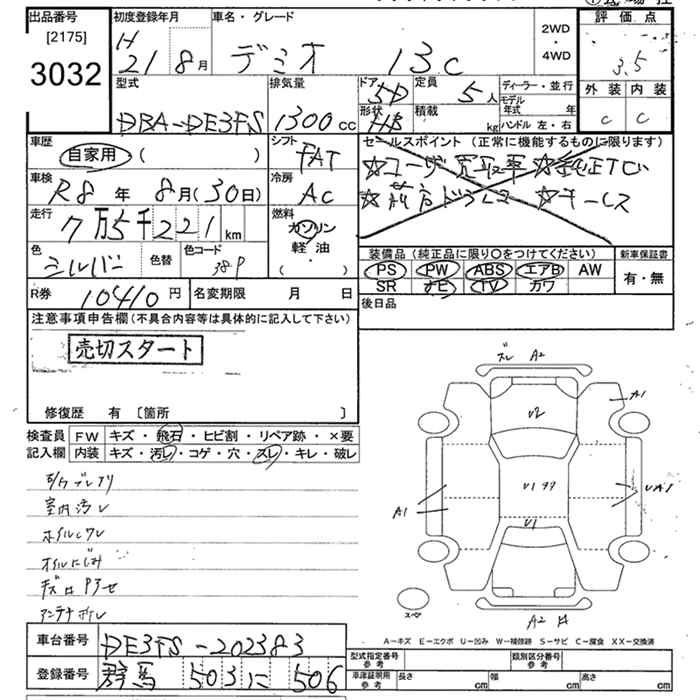 出品番号 初度登録年月 車名・グレード 2WD ・ 4WD 評価点
[2175]
3032
H 21 8月 デミオ 13C 3.5
型式 排気量 ドア 定員 ディーラー・並行 外装 内装
DBA-DE3FS 1300cc 5D 5人 モデル年式 年 C C
形状 HB 積載 kg ハンドル 左・右
車歴 シフト セールスポイント(正常に機能するものに限ります)
自家用 ( ) FAT
☆ユーザー買取車 ☆純正TV
車検 冷房
R8年 8月(30日) AC ☆キーレス
走行 燃料
7万5千221km ガソリン
軽油
( )
色 色替 色コード 装備品(純正品に限り○をつけてください) 新車保証書
シルバー 38P PS PW ABS エアB AW 有・無
SR ナビ TV カワ
R券 10410円 名変期限 月 日 後日品
注意事項申告欄(不具合内容等は具体的に記入して下さい)
売切スタート
修復歴 有 [箇所 ]
検査員記入欄 FW キズ・飛石・ヒビ割・リペア跡・×要
内装 キズ・汚レ・コゲ・穴・スレ・キレ・破レ
室内汚レ
オイルにじみ
アンテナ
ズレ A2
U2
A1
U1
A1
U1
UA1
A2
スペア
A-キズ E-エクボ U-凹み W-補修跡 S-サビ C-腐食 XX-交換済
車台番号 DE3FS-202383
登録番号 群馬 503 に 506
型式指定番号 参考 類別区分番号 参考
車庫証明用 参考 長さ cm 幅 cm 高さ cm